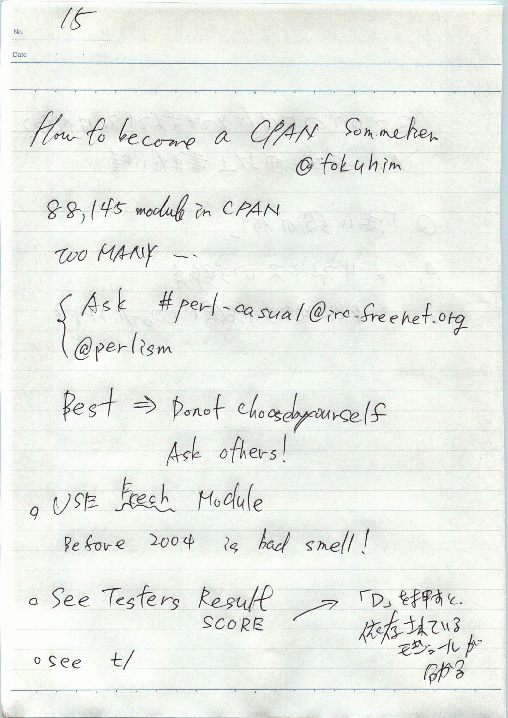 No.
15
Date
How to become a CPAN Sommelier
@tokuhim
88,145 module in CPAN
TOO MANY ...
Ask #perl-casual@irc.freenet.org
@perlism
Best ⇒ Donot choosebyyourself
Ask others!
○ USE Fresh Module
Before 2004 is bad smell!
○ See Testers Result
SCORE
→ 「D」を押すと、
依存されている
モジュールが
分かる
○ see t/